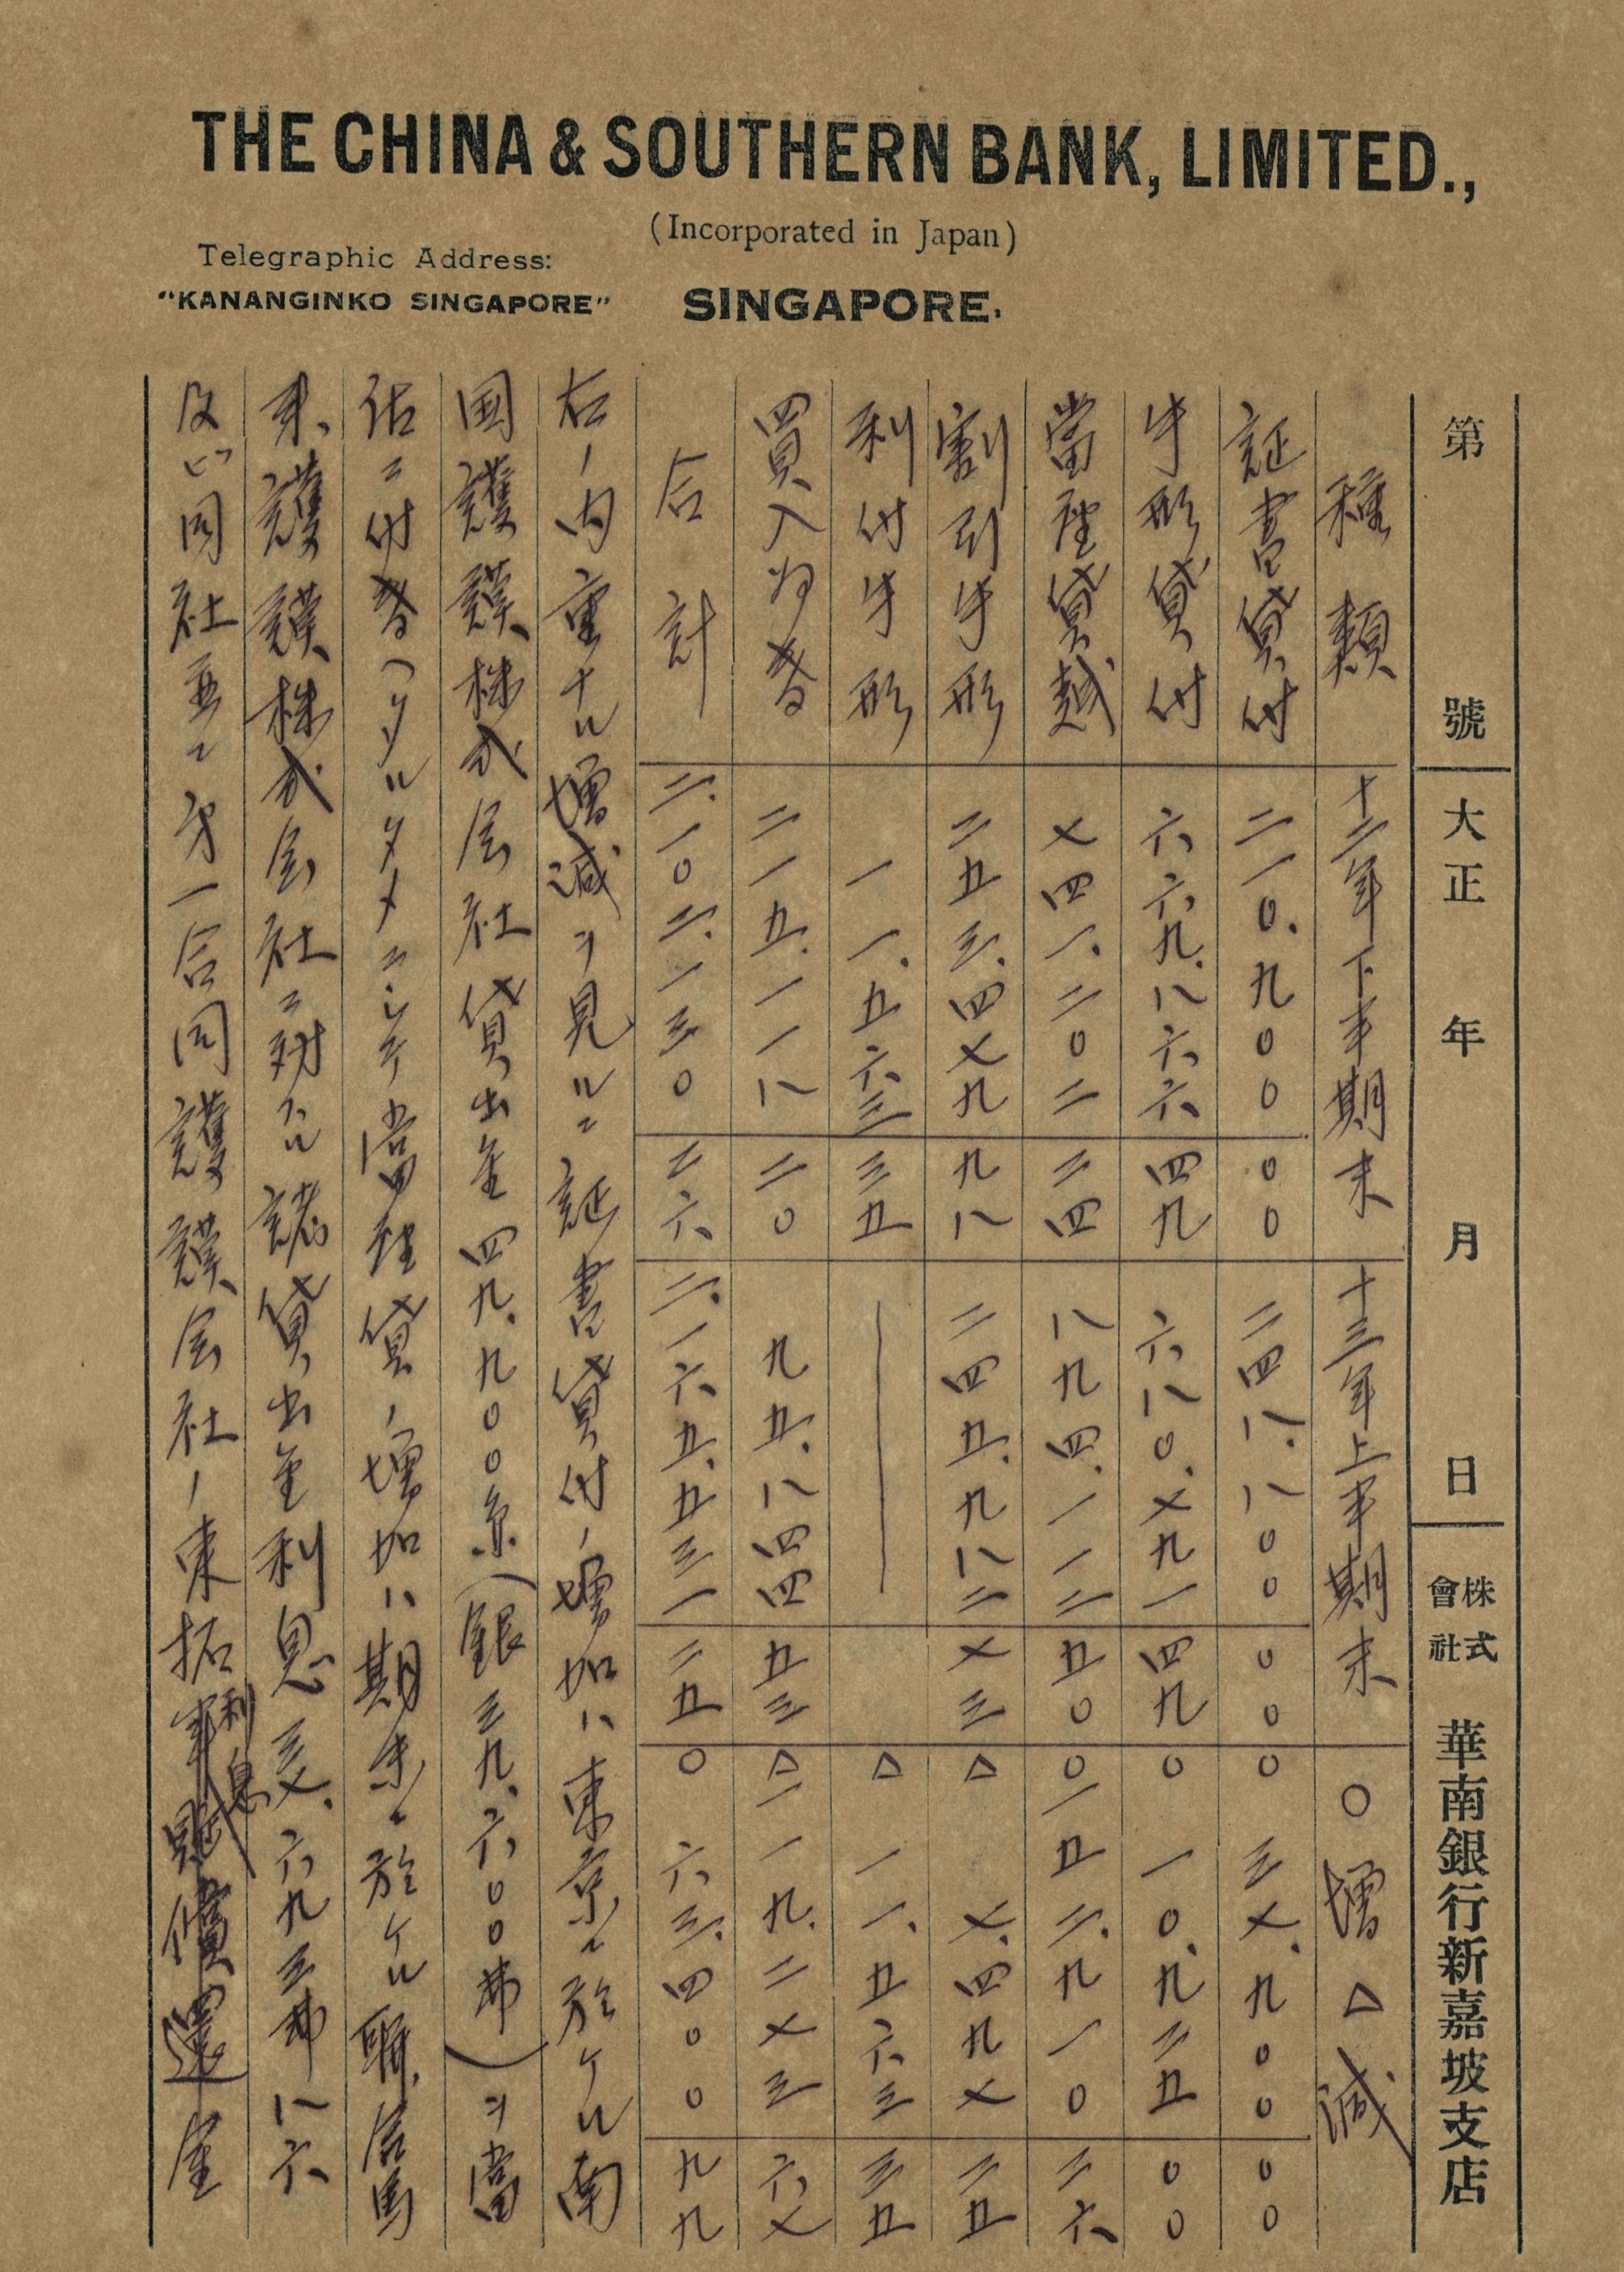 THE CHINA & SOUTHERN BANK, LIMITED.,
(Incorporated in Japan)
Telegraphic Address:
"KANANGINKO SINGAPORE"
SINGAPORE.
第 號 大正 年 月 日 株式會社 華南銀行新嘉坡支店
種類 十二年下半期末 十三年上半期末 ○増△減
証書貸付 二一〇.九〇〇 〇〇 二四八.八〇〇 〇〇 ○ 三七.九〇〇 〇〇
手形貸付 六六九.八六六 四九 六八〇.七九一 四九 ○ 一〇.九二五 〇〇
當座貸越 七四一.二〇二 二四 八九四.一一二 五〇 ○ 一五二.九一〇 二六
割引手形 二五三.四七九 九八 二四五.九八二 七三 △ 七.四九七 二五
利付手形 一一.五六三 三五 — △ 一一.五六三 三五
買入為替 二一五.一一八 二〇 九五.八四四 五三 △ 一一九.二七三 六七
合計 二.一〇二.一三〇 二六 二.一六五.五三一 二五 ○ 六三.四〇〇 九九
右ノ内重ナル増減ヲ見ルニ証書貸付ノ増加ハ東京ニ於ケル南
国護謨株式会社貸出金四九.九〇〇円(銀三九.六〇〇弗)ヲ當
店ニ付替ヘタルタメニシテ當座貸ノ増加ハ期末ニ於ケル
来護謨株式会社ニ対スル諸貸出金利息三七.六九三弗八六
及ビ同社並ニ第一合同護謨会社ノ東拓利息償還金